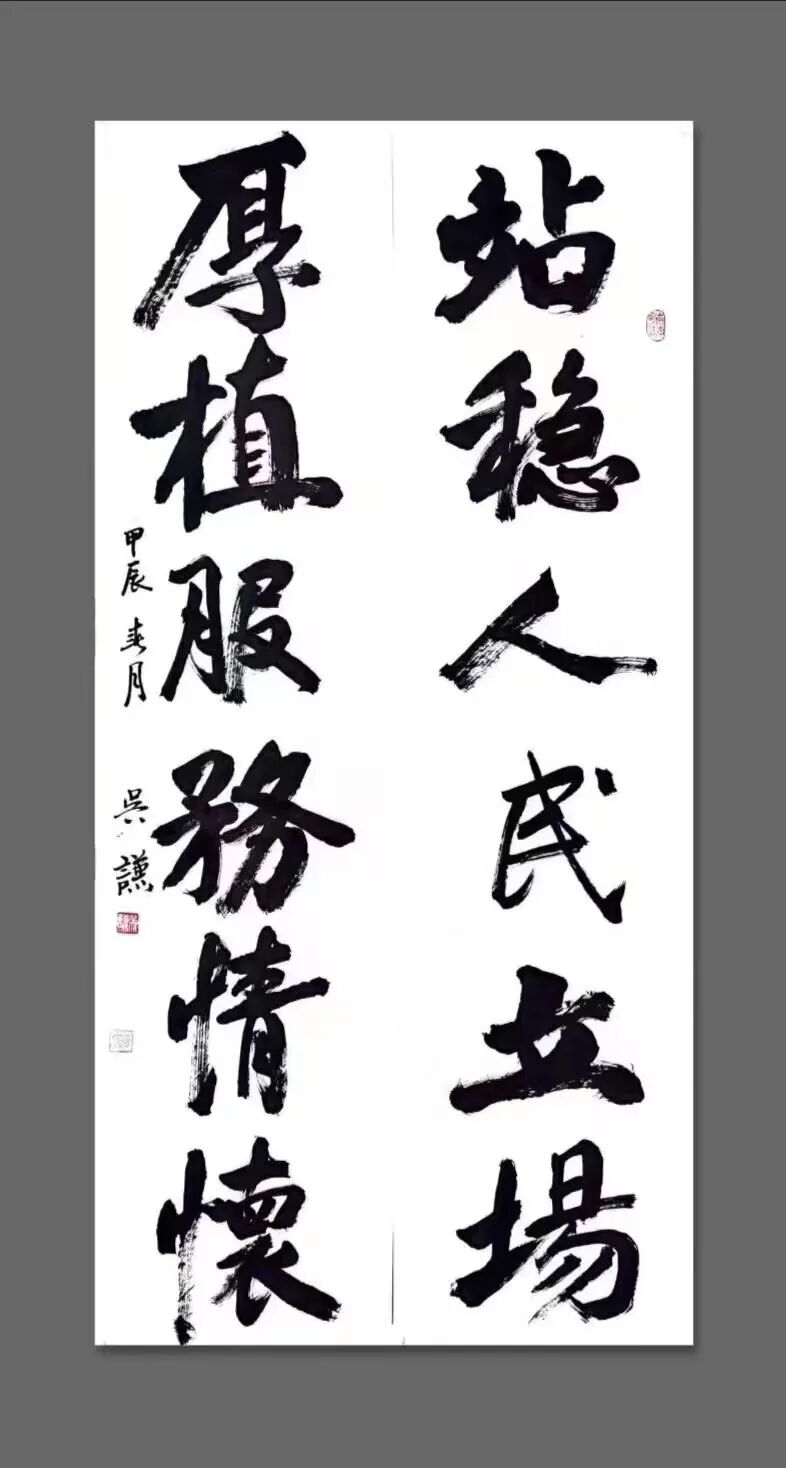 站稳人民立場
厚植服務情懷
甲辰春月
吳謙